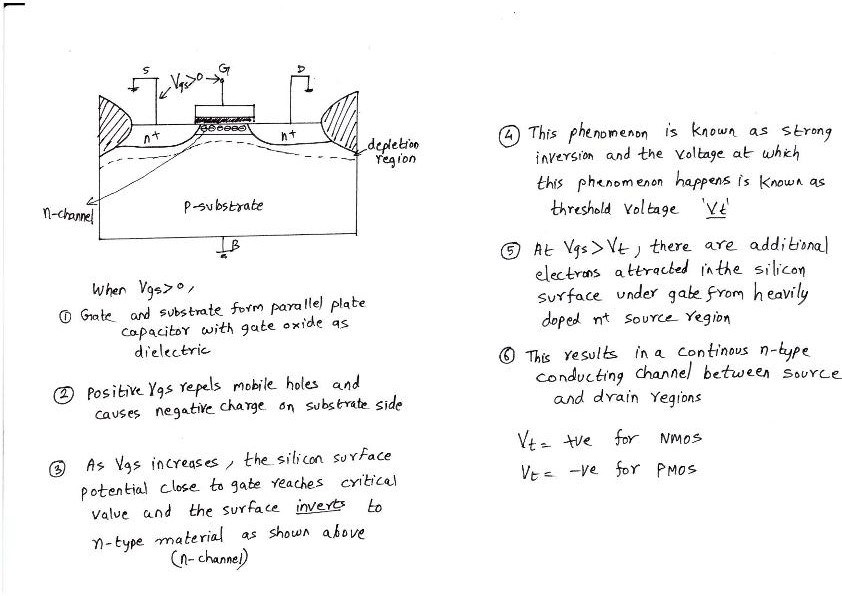 S
Vgs>0
G
D
n+
n+
depletion
region
n-channel
P-substrate
B
When Vgs>0,
① Gate and substrate form parallel plate
capacitor with gate oxide as
dielectric
② Positive Vgs repels mobile holes and
causes negative charge on substrate side
③ As Vgs increases, the silicon surface
potential close to gate reaches critical
value and the surface inverts to
n-type material as shown above
(n-channel)
④ This phenomenon is known as strong
inversion and the voltage at which
this phenomenon happens is known as
threshold voltage 'Vt'
⑤ At Vgs>Vt, there are additional
electrons attracted in the silicon
surface under gate from heavily
doped n+ source region
⑥ This results in a continous n-type
conducting channel between source
and drain regions
Vt = +ve for NMOS
Vt = -ve for PMOS